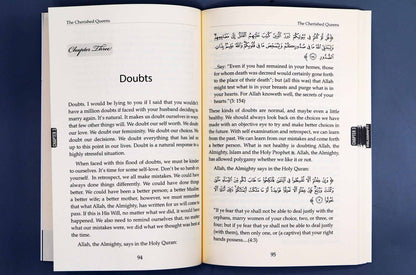 The Cherished Queens
Chapter Three
Doubts
Doubts. I would be lying to you if I said that you wouldn't
have a million doubts if faced with your husband deciding to
marry again. It's natural. It makes us doubt ourselves in ways
that few other things will. We doubt our self worth. We doubt
our love. We doubt our femininity. We doubt our choices. We
doubt our decisions. We doubt everything that has led us
up to this point in our lives. Doubt is a natural response to a
highly stressful situation.
When faced with this flood of doubts, we must be kind
to ourselves. It's time for some self-love. Don't be so hard on
yourself. In retrospect, we all make mistakes. We could have
always done things differently. We could have done things
better. We could have been a better person; a better Muslim;
a better wife; a better mother, however, we must remember
that Allah, the Almighty, has written for us will come to
pass. If this is His Will, no matter what we did, it would have
happened. We also need to remind ourselves that, no matter
what our mistakes were, we did what we thought was best at
the time.
Allah, the Almighty, says in the Holy Quran:
94
The Cherished Queens
...Say: "Even if you had remained in your homes, those
for whom death was decreed would certainly gone forth
to the place of their death"; but (all this was) that Allah
might test what is in your breasts and purge what is in
your hearts. For Allah knoweth well, the secrets of your
hearts." (3: 154)
These kinds of doubts are normal, and maybe even a little
healthy. We should always look back on the choices we have
made with an objective eye to try and make better choices in
the future. With self examination and retrospect, we can learn
from the past. We can learn from our mistakes and come forth
a better person. What is not healthy is doubting Allah, the
Almighty, Islam and the Holy Prophet. Allah, the Almighty,
has allowed polygamy whether we like it or not.
Allah, the Almighty says in the Holy Quran:
"If ye fear that ye shall not be able to deal justly with the
orphans, marry women of your choice, two, or three, or
four; but if ye fear that ye shall not be able to deal justly
(with them), then only one, or (a captive) that your right
hands possess....(4:3)
95